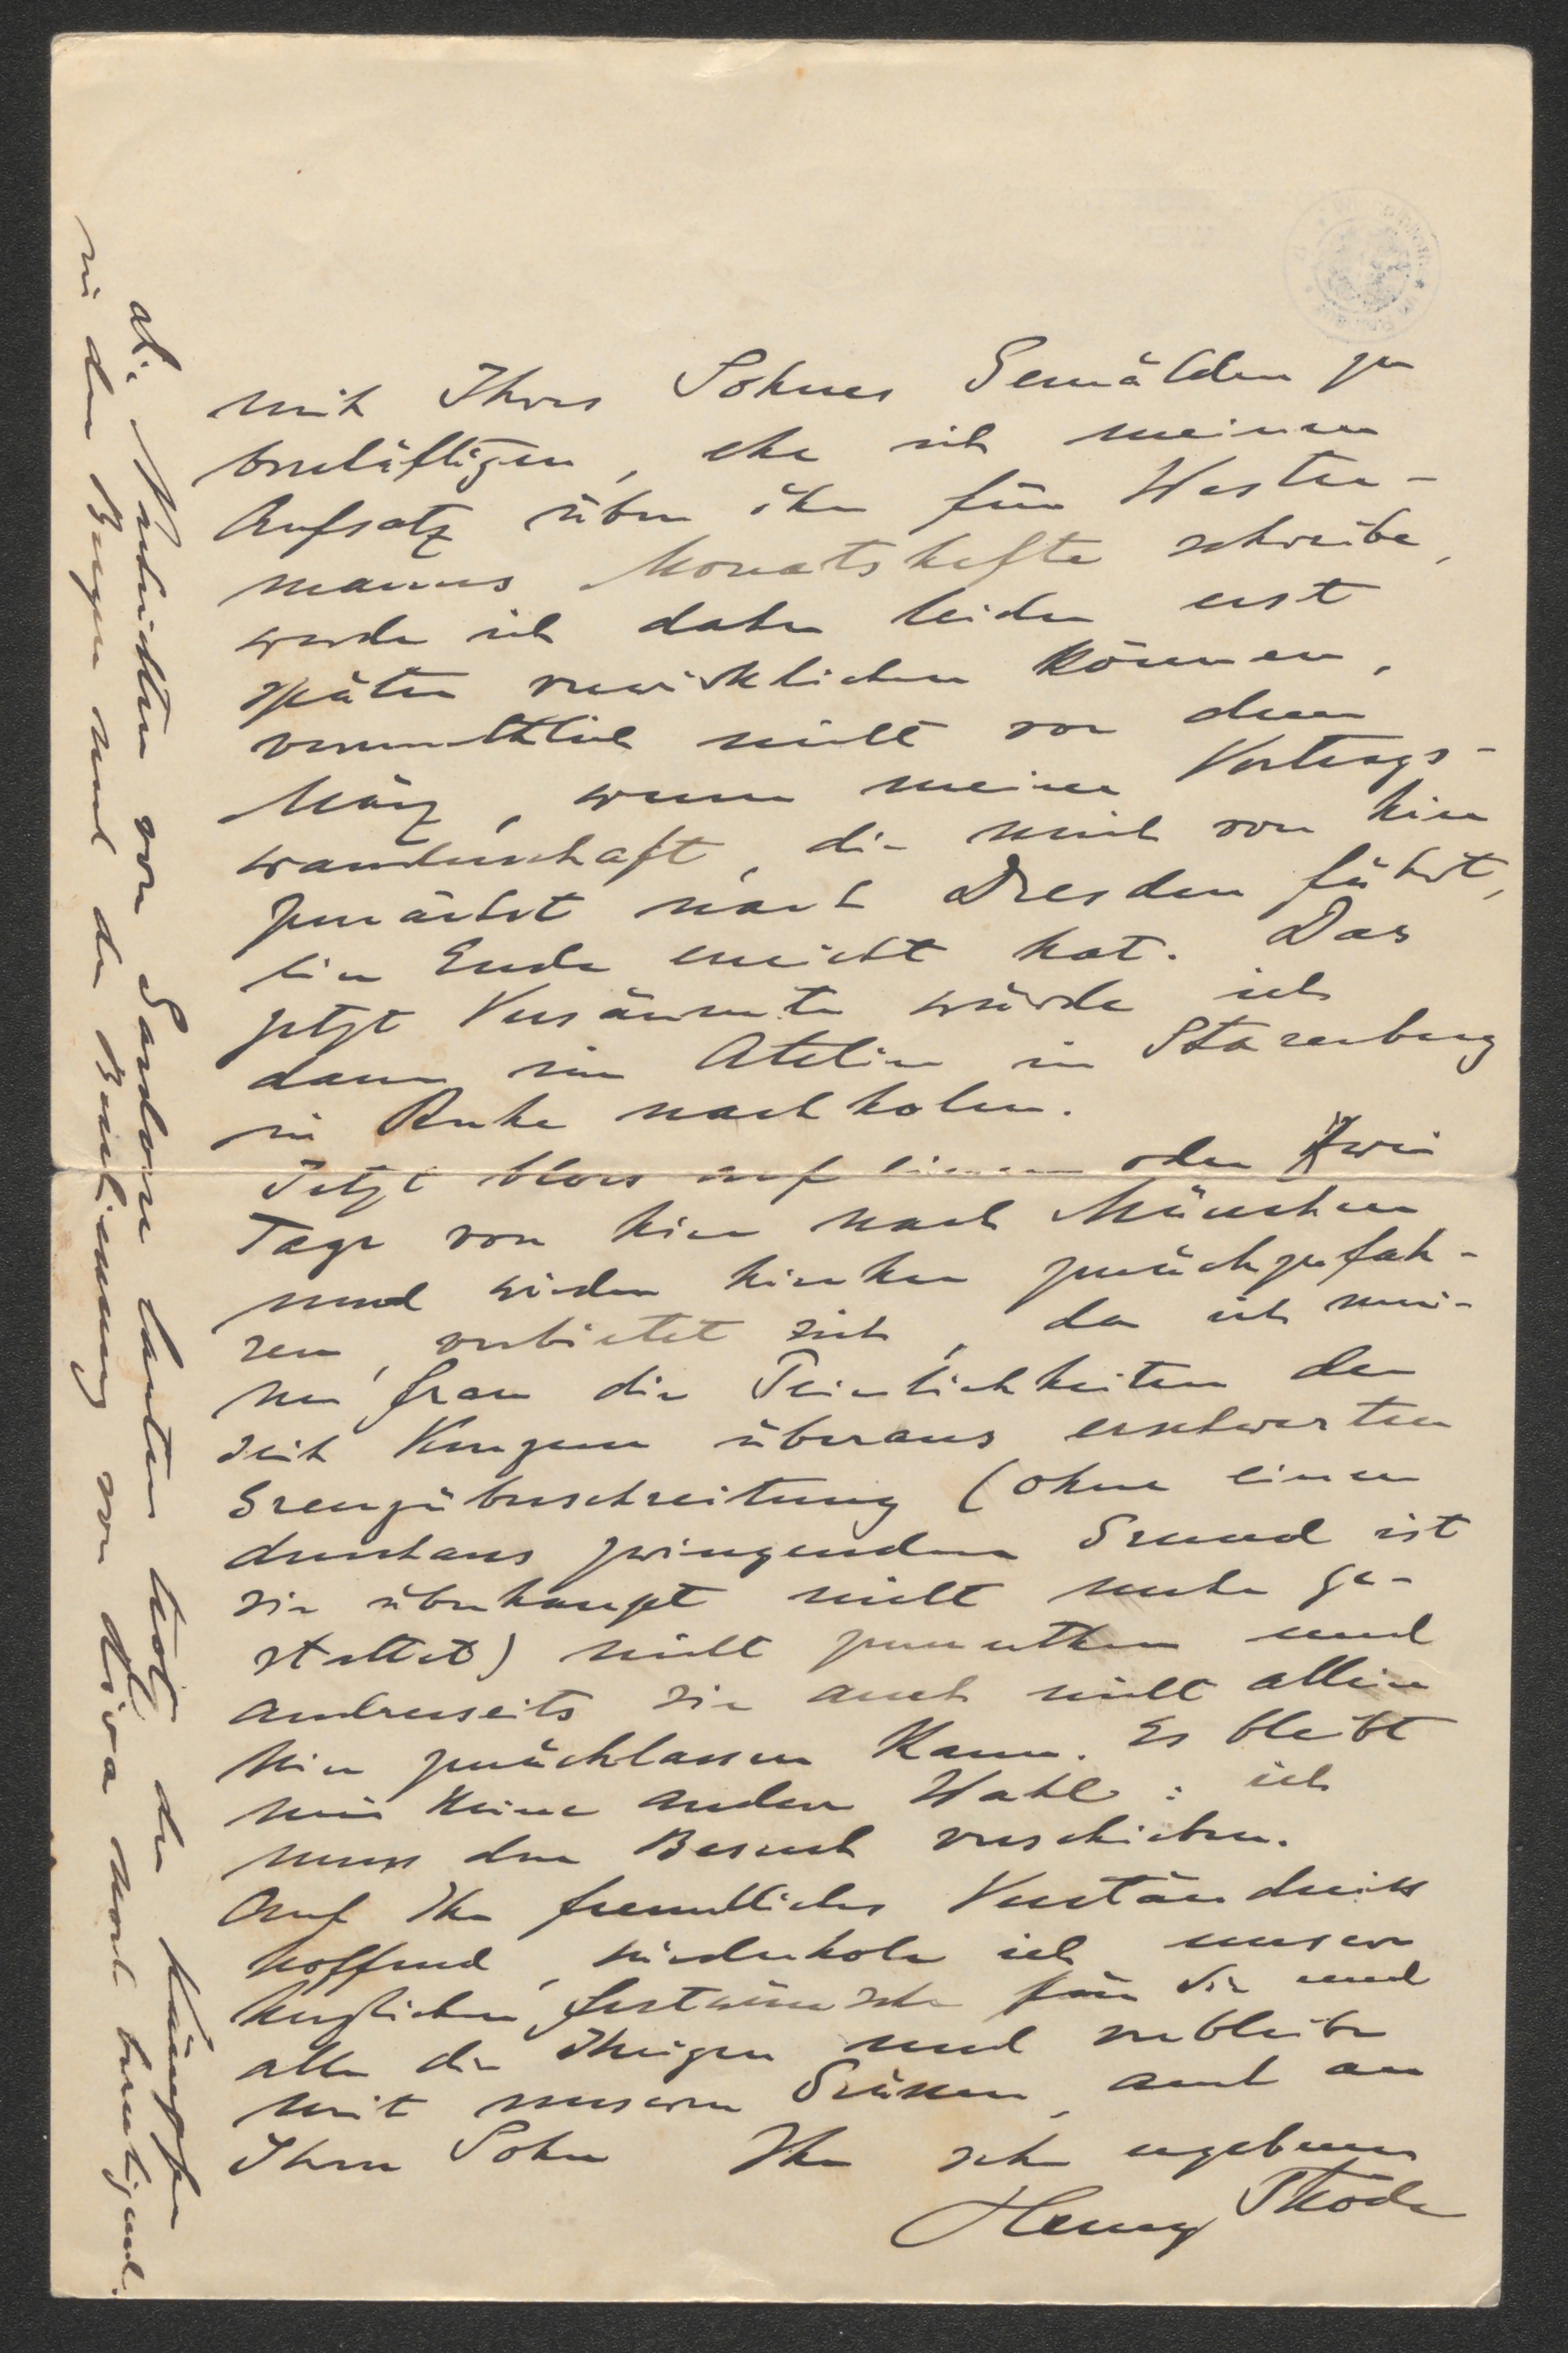 mit Ihres Sohnes Gemälden zu
beschäftigen, ehe ich meinen
Aufsatz über ihn für Wester-
manns Monatshefte schreibe,
werde ich daher leider erst
später verwirklichen können,
vermuthlich nicht vor dem
März, wenn meine Vortrags-
wanderschaft, die mich von hier
zunächst nach Dresden führt,
ein Ende erreicht hat. Das
jetzt Versäumte würde ich
dann im Atelier in Starenberg
in Ruhe nachholen.
Jetzt bloss auf einen oder zwei
Tage von hier nach München
und wieder hierher zurückzufah-
ren, verbietet sich, da ich mei-
ner Frau die Peinlichkeiten der
seit Kurzem überaus erschwerten
Grenzüberschreitung (ohne einen
durchaus zwingenden Grund ist
sie überhaupt nicht mehr ge-
stattet) nicht zumuthen und
andrerseits sie auch nicht allein
hier zurücklassen kann. Es bleibt
mir keine andere Wahl: ich
muss den Besuch verschieben.
Auf Ihr freundliches Verständniss
hoffend, wiederhole ich unsere
herzlichen Festwünsche für Sie und
alle die Ihrigen und verbleibe
mit unseren Grüssen, auch an
Ihren Sohn Ihr sehr ergebener
Henry Thode
die Nachrichten von Gardone lauten trotz der Kämpfe
in den Bergen und der Beschiessung von Riva noch beruhigend.